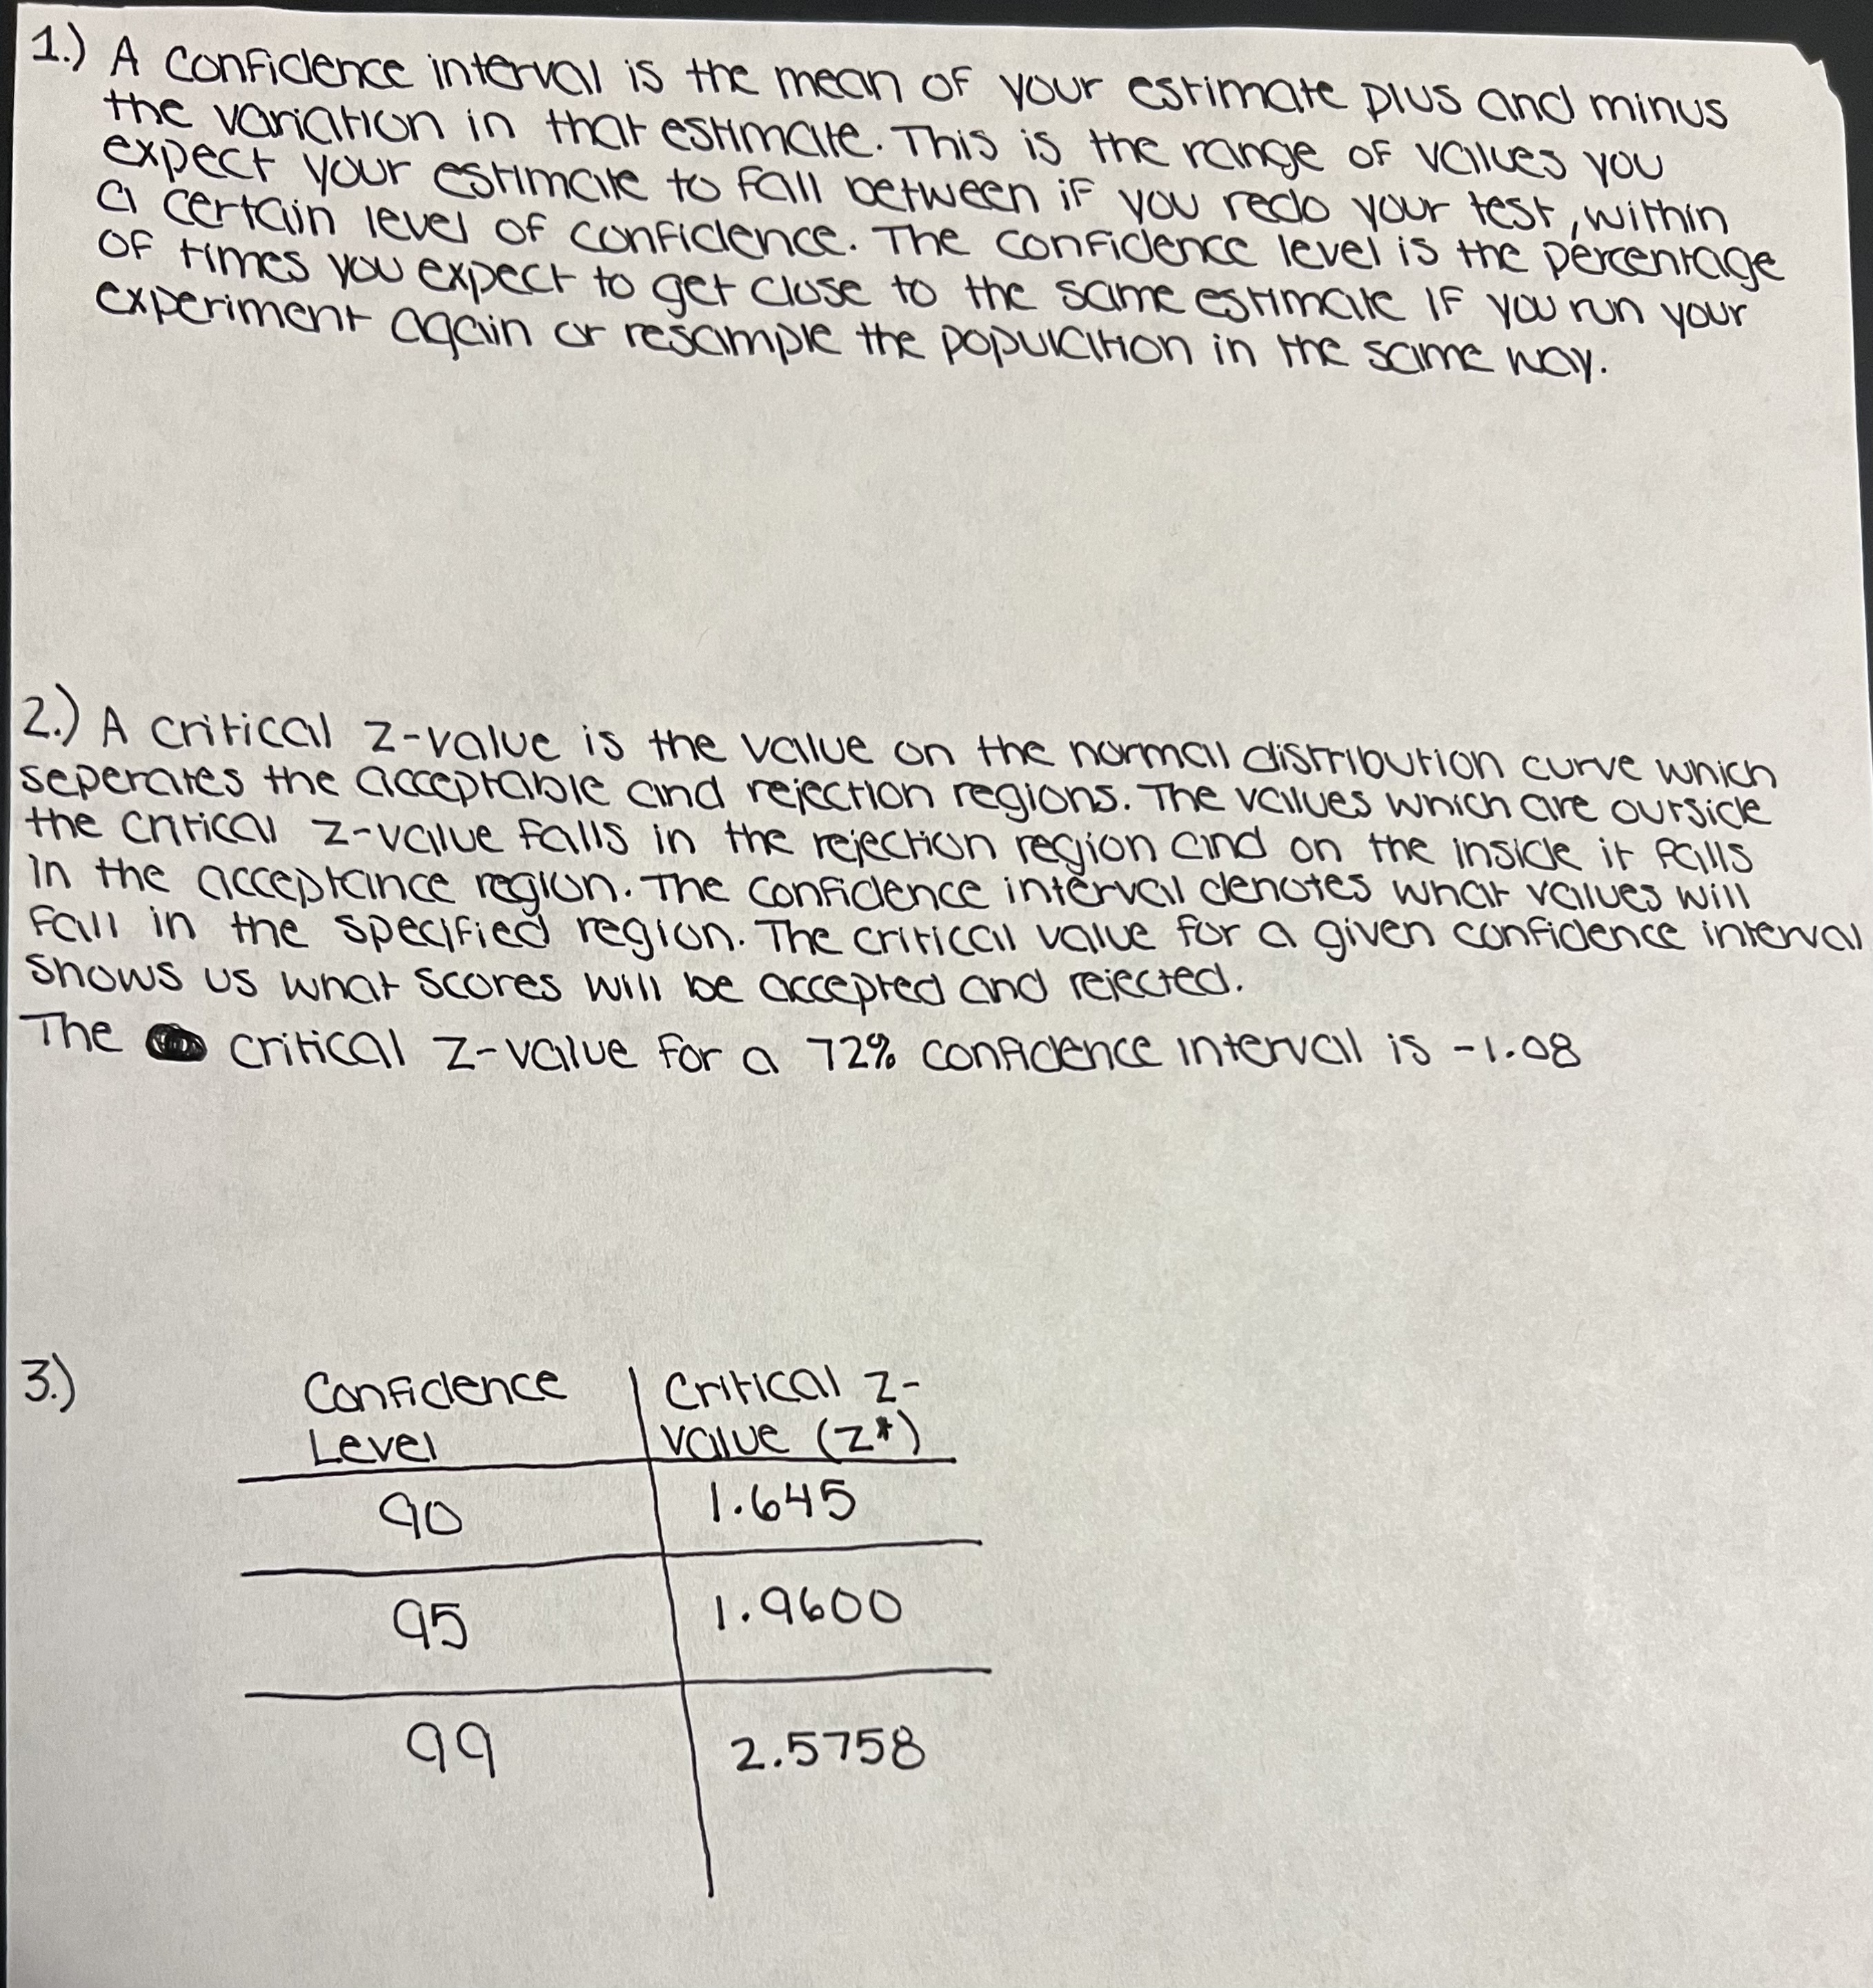 1.) A confidence interval is the mean of your estimate plus and minus
the variation in that estimate. This is the range of values you
expect your estimate to fall between if you redo your test, within
a certain level of confidence. The confidence level is the percentage
of times you expect to get close to the same estimate if you run your
experiment again or resample the population in the same way.
2.) A critical z-value is the value on the normal distribution curve which
seperates the acceptable and rejection regions. The values which are outside
the critical z-value falls in the rejection region and on the inside it falls
in the acceptance region. The confidence interval denotes what values will
fall in the specified region. The critical value for a given confidence interval
shows us what scores will be accepted and rejected.
The critical z-value for a 72% confidence interval is -1.08
3.)
Confidence Level | Critical z-value (z*)
90 | 1.645
95 | 1.9600
99 | 2.5758